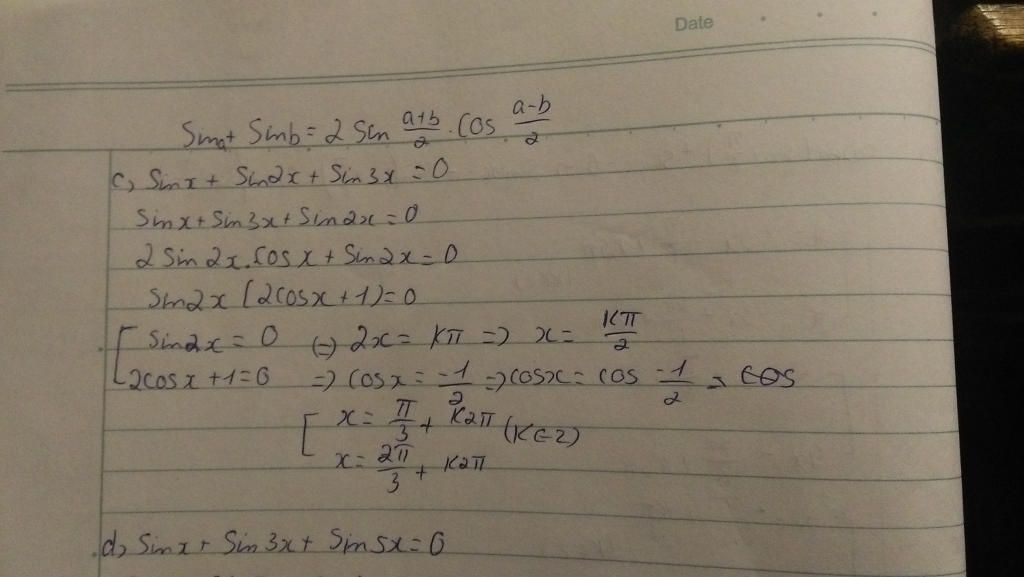 Date
Sina + Sinb = 2 Sin \frac{a+b}{2} . Cos \frac{a-b}{2}
c, Sinx + Sin2x + Sin3x = 0
Sinx + Sin3x + Sin2x = 0
2 Sin 2x. Cos x + Sin2x = 0
Sin2x (2cosx + 1) = 0
[ Sin2x = 0 (=) 2x = Kπ => x = \frac{Kπ}{2}
2cosx + 1 = 0 => Cosx = \frac{-1}{2} => cosx = cos \frac{-1}{2} = cos
[ x = \frac{π}{3} + K2π (K∈Z)
x = \frac{2π}{3} + K2π
d, Sinx + Sin3x + Sin5x = 0